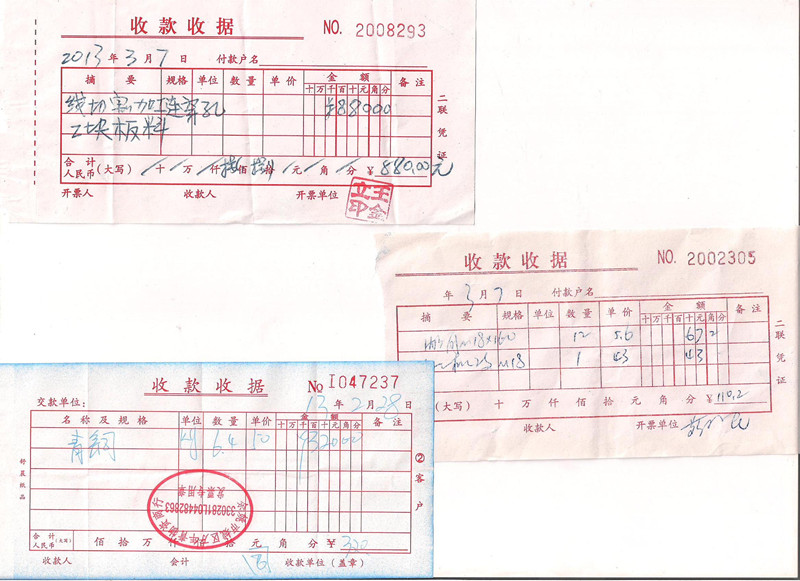 收款收据 NO. 2008293
2013年3月7日 付款户名
摘要 规格 单位 数量 单价 金额 备注
十万千百十元角分
线切割加工连穿孔 ¥88000
2块板料
合计人民币(大写) 十万仟捌佰捌拾元角分 ¥880.00元
开票人 收款人 开票单位
二联凭证
王金立印
收款收据 NO. 2002305
年3月7日 付款户名
摘要 规格 单位 数量 单价 金额 备注
十万千百十元角分
12 5.6 672
M18 1 43 43
(大写) 十万仟佰拾元角分 ¥110.2
收款人 开票单位
二联凭证
收款收据 No 1047237
交款单位: 13年2月28日
名称及规格 单位 数量 单价 金额 备注
十万千百十元角分
青铜 6.4 50 32000
合计人民币(大写) 佰拾万 拾元角分 ¥320
收款人 会计 收款单位(盖章)
②客户
发票专用章
330281L04482863